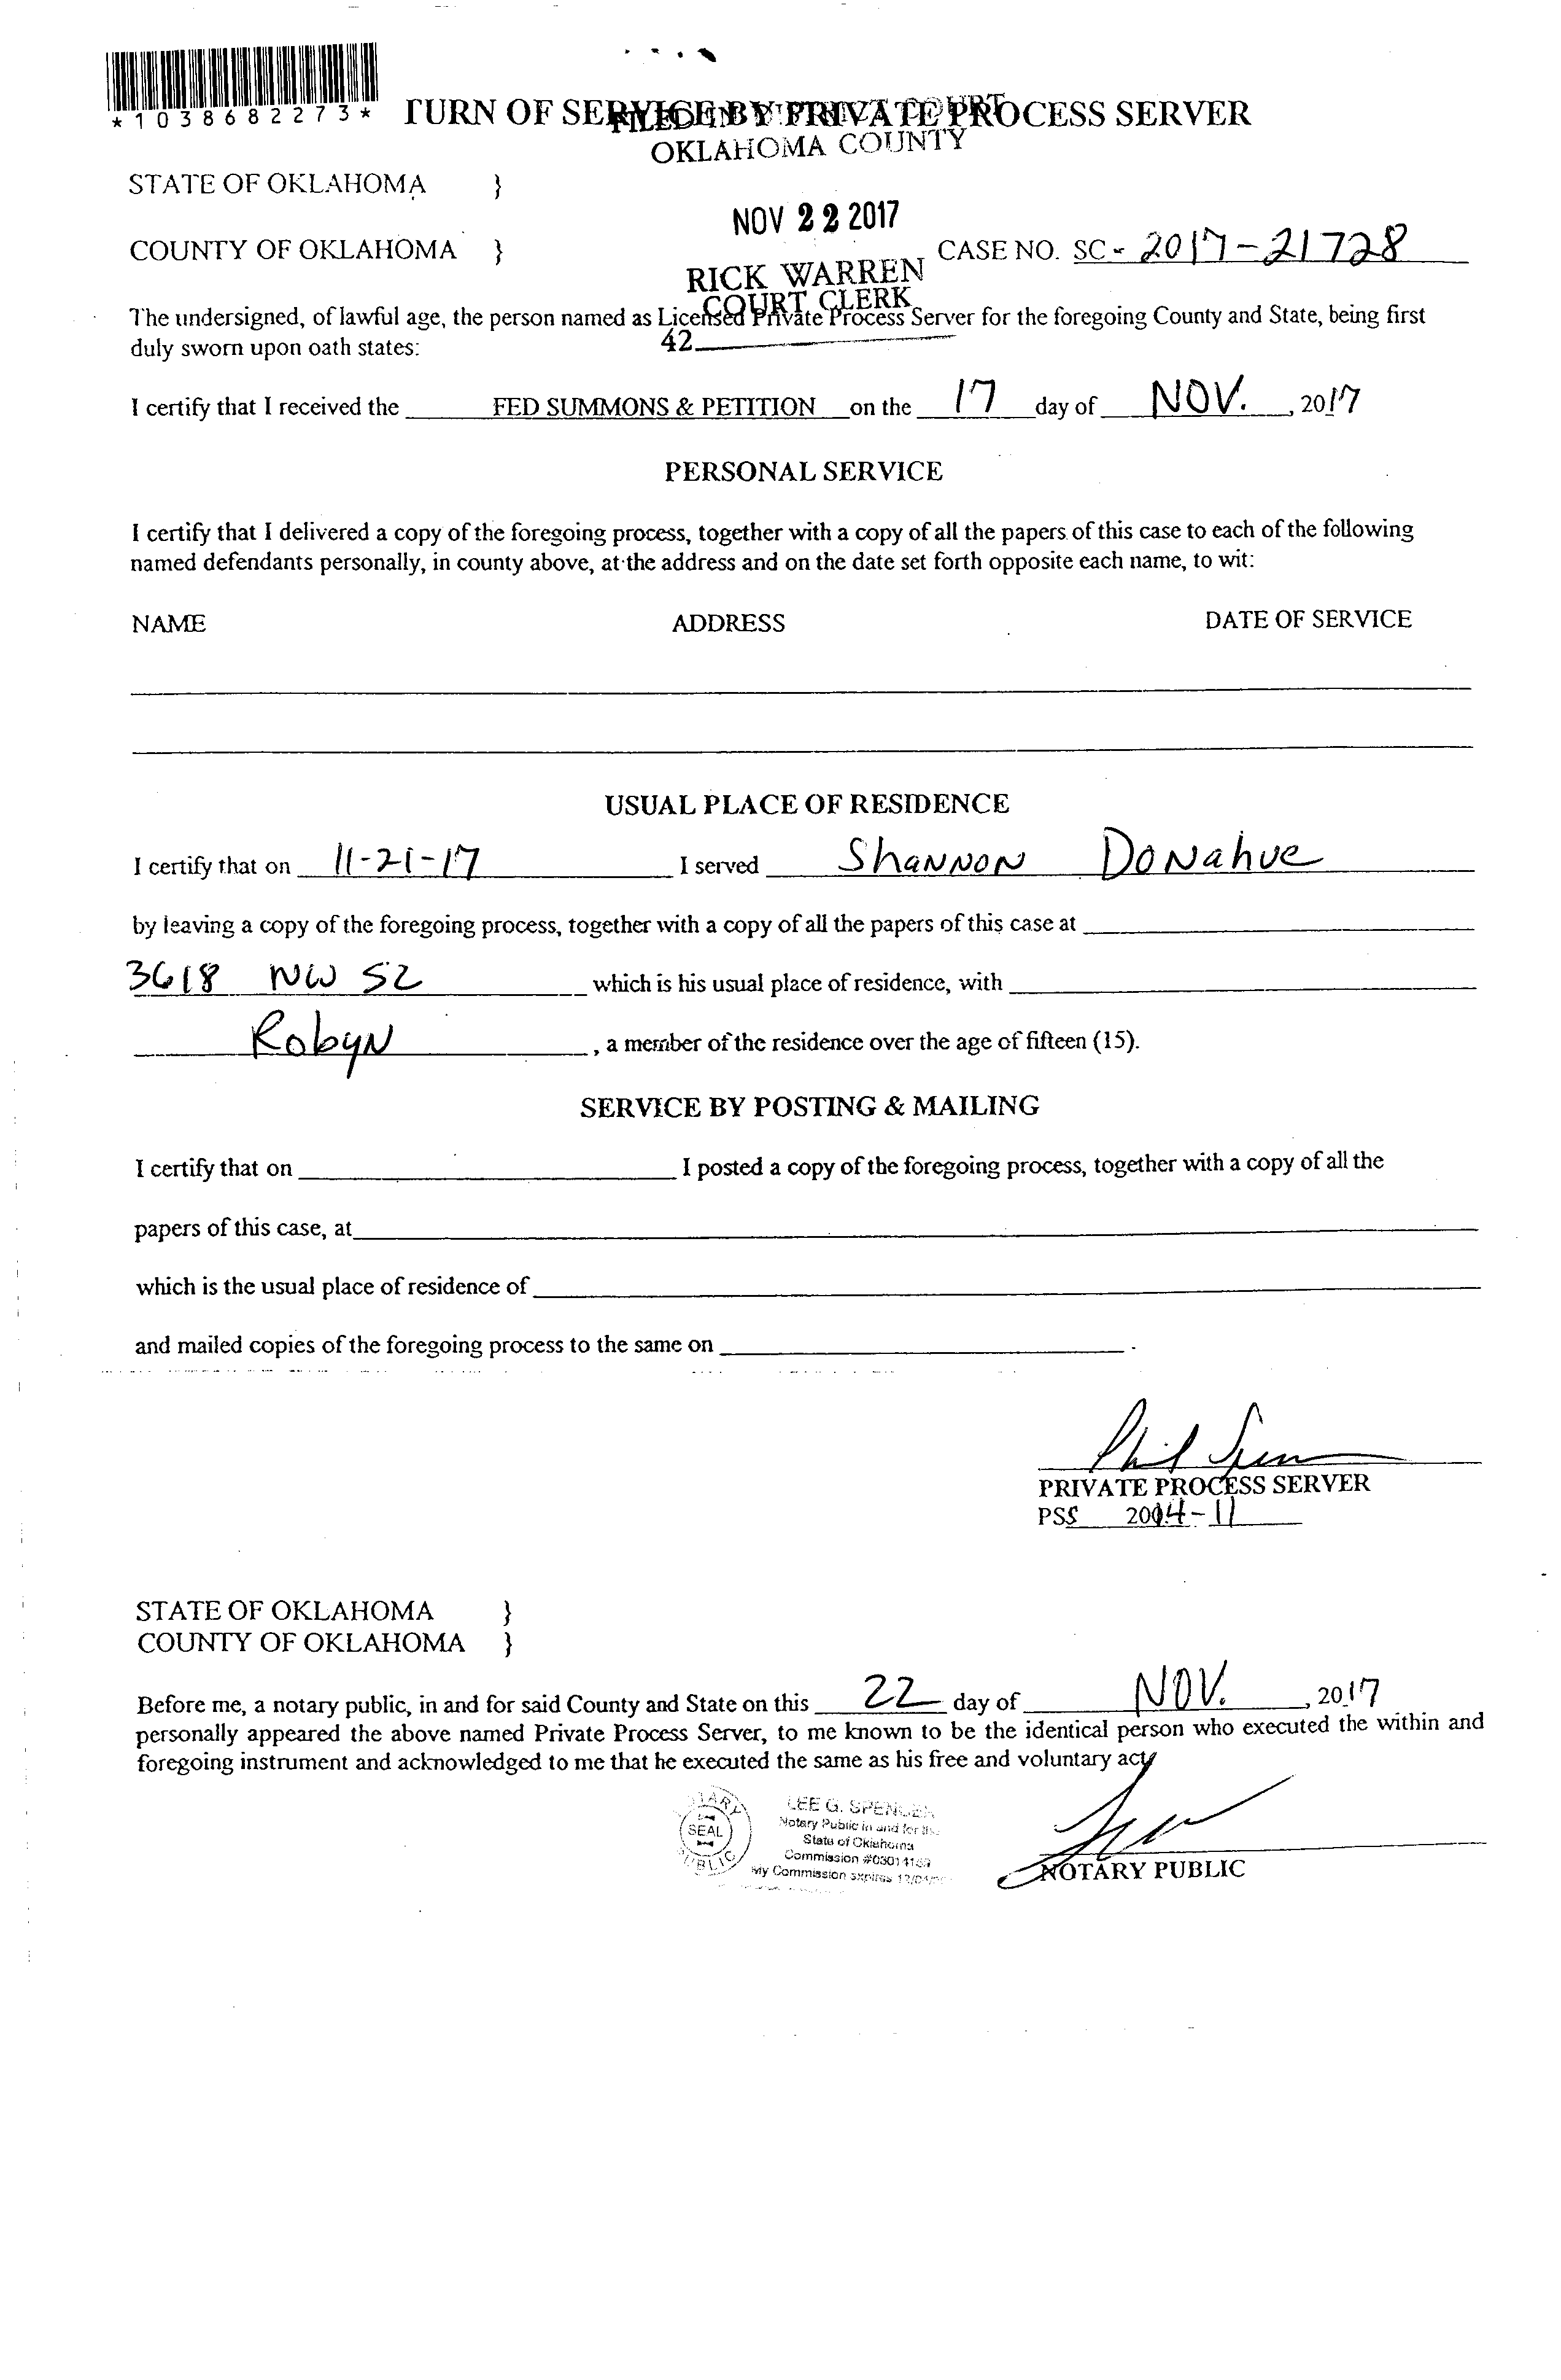 *1038682273*
TURN OF SERVICE BY PRIVATE PROCESS SERVER
FILED IN COURT
OKLAHOMA COUNTY
STATE OF OKLAHOMA }
NOV 22 2017
COUNTY OF OKLAHOMA }
CASE NO. SC - 2017-21728
RICK WARREN
COURT CLERK
The undersigned, of lawful age, the person named as Licensed Private Process Server for the foregoing County and State, being first
duly sworn upon oath states:
42
I certify that I received the FED SUMMONS & PETITION on the 17 day of NOV. , 2017
PERSONAL SERVICE
I certify that I delivered a copy of the foregoing process, together with a copy of all the papers of this case to each of the following
named defendants personally, in county above, at the address and on the date set forth opposite each name, to wit:
NAME ADDRESS DATE OF SERVICE
USUAL PLACE OF RESIDENCE
I certify that on 11-21-17 I served Shannon Donahue
by leaving a copy of the foregoing process, together with a copy of all the papers of this case at
3618 NW 52 which is his usual place of residence, with
Robyn , a member of the residence over the age of fifteen (15).
SERVICE BY POSTING & MAILING
I certify that on I posted a copy of the foregoing process, together with a copy of all the
papers of this case, at
which is the usual place of residence of
and mailed copies of the foregoing process to the same on .
PRIVATE PROCESS SERVER
PSS 2014-11
STATE OF OKLAHOMA }
COUNTY OF OKLAHOMA }
Before me, a notary public, in and for said County and State on this 22 day of NOV. , 2017
personally appeared the above named Private Process Server, to me known to be the identical person who executed the within and
foregoing instrument and acknowledged to me that he executed the same as his free and voluntary act
SEAL
LEE G. SPENCER
Notary Public in and for the
State of Oklahoma
Commission
My Commission expires
NOTARY PUBLIC